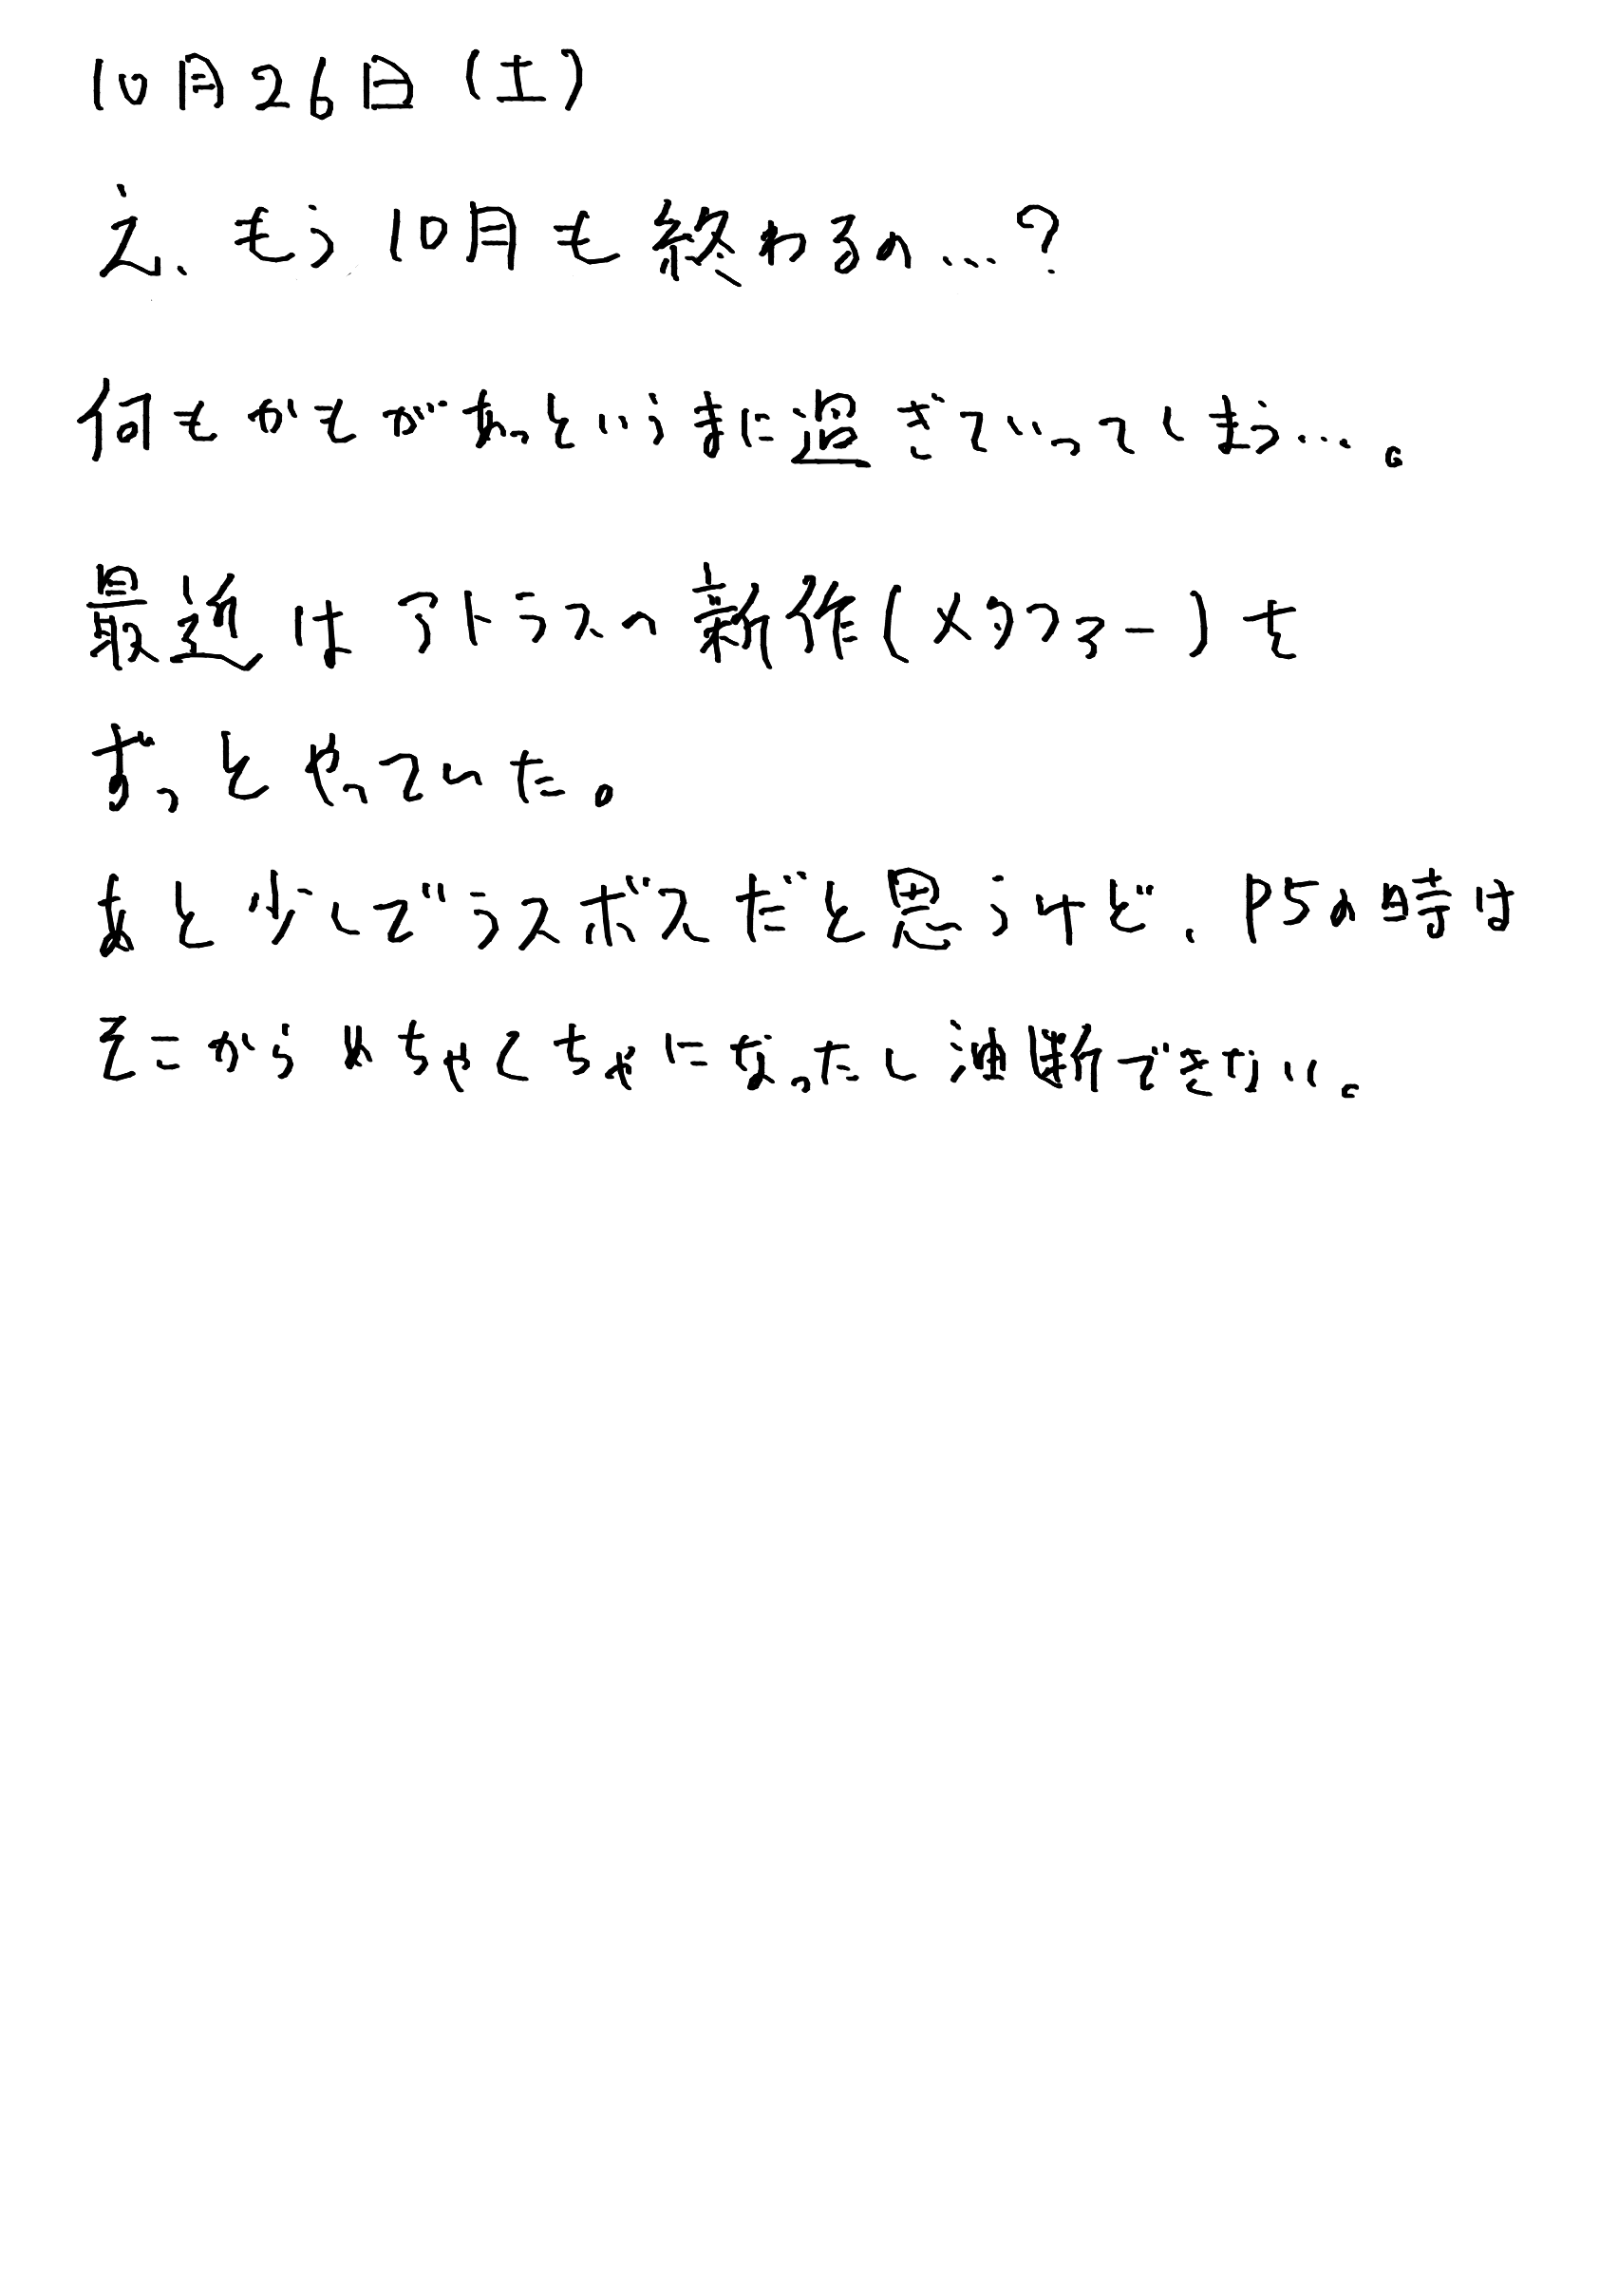 10月26日(土)
え、もう10月も終わるの…?
何もかもがあっというまに過ぎていってしまう…。
最近はアトラスの新作(メタファー)を
ずっとやっていた。
あと少しでラスボスだと思うけど、P5の時は
そこからめちゃくちゃになったし油断できない。